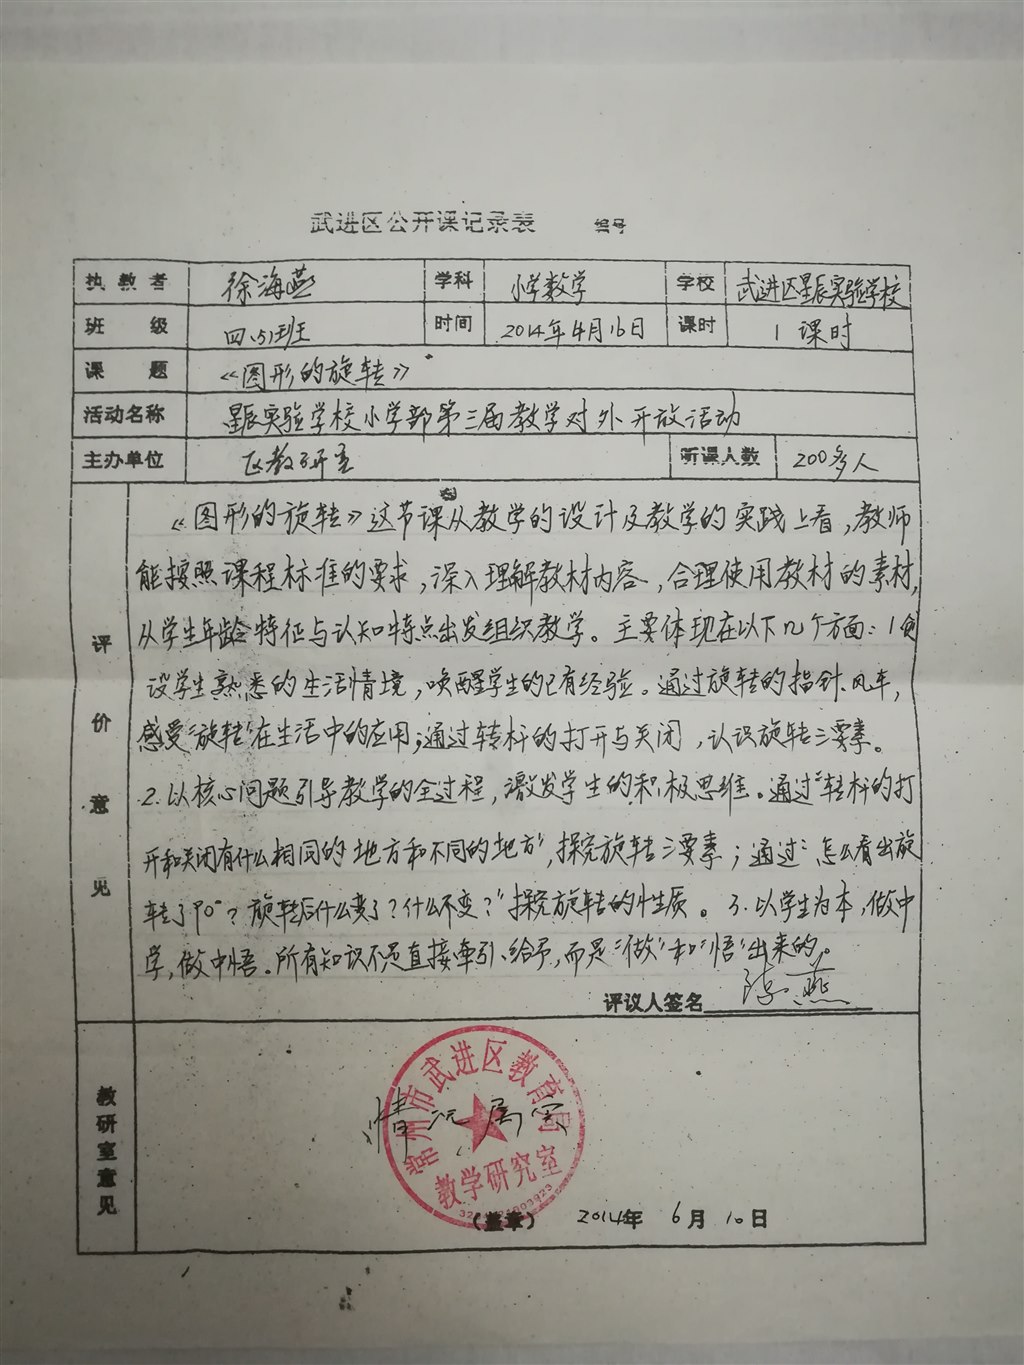 武进区公开课记录表 编号
执教者 徐海燕 学科 小学数学 学校 武进区星辰实验学校
班级 四.5班 时间 2014年4月16日 课时 1课时
课题 《图形的旋转》
活动名称 星辰实验学校小学部第三届教学对外开放活动
主办单位 区教研室 听课人数 200多人
评价意见
《图形的旋转》这节课从教学的设计及教学的实践上看，教师
能按照课程标准的要求，深入理解教材内容，合理使用教材的素材，
从学生年龄特征与认知特点出发组织教学。主要体现在以下几个方面：1.创
设学生熟悉的生活情境，唤醒学生的已有经验。通过旋转的指针、风车，
感受“旋转”在生活中的应用；通过转杆的打开与关闭，认识旋转三要素。
2.以核心问题引导教学的全过程，激发学生的积极思维。通过“转杆的打
开和关闭有什么相同的地方和不同的地方”，探究旋转三要素；通过“怎么看出旋
转了90°？旋转后什么变了？什么不变？”探究旋转的性质。3.以学生为本，做中
学，做中悟。所有知识不是直接牵引、给予，而是“做”和“悟”出来的。
评议人签名 陈燕
教研室意见
情况属实
常州市武进区教育局
教学研究室
（盖章） 2014年 6月 10日